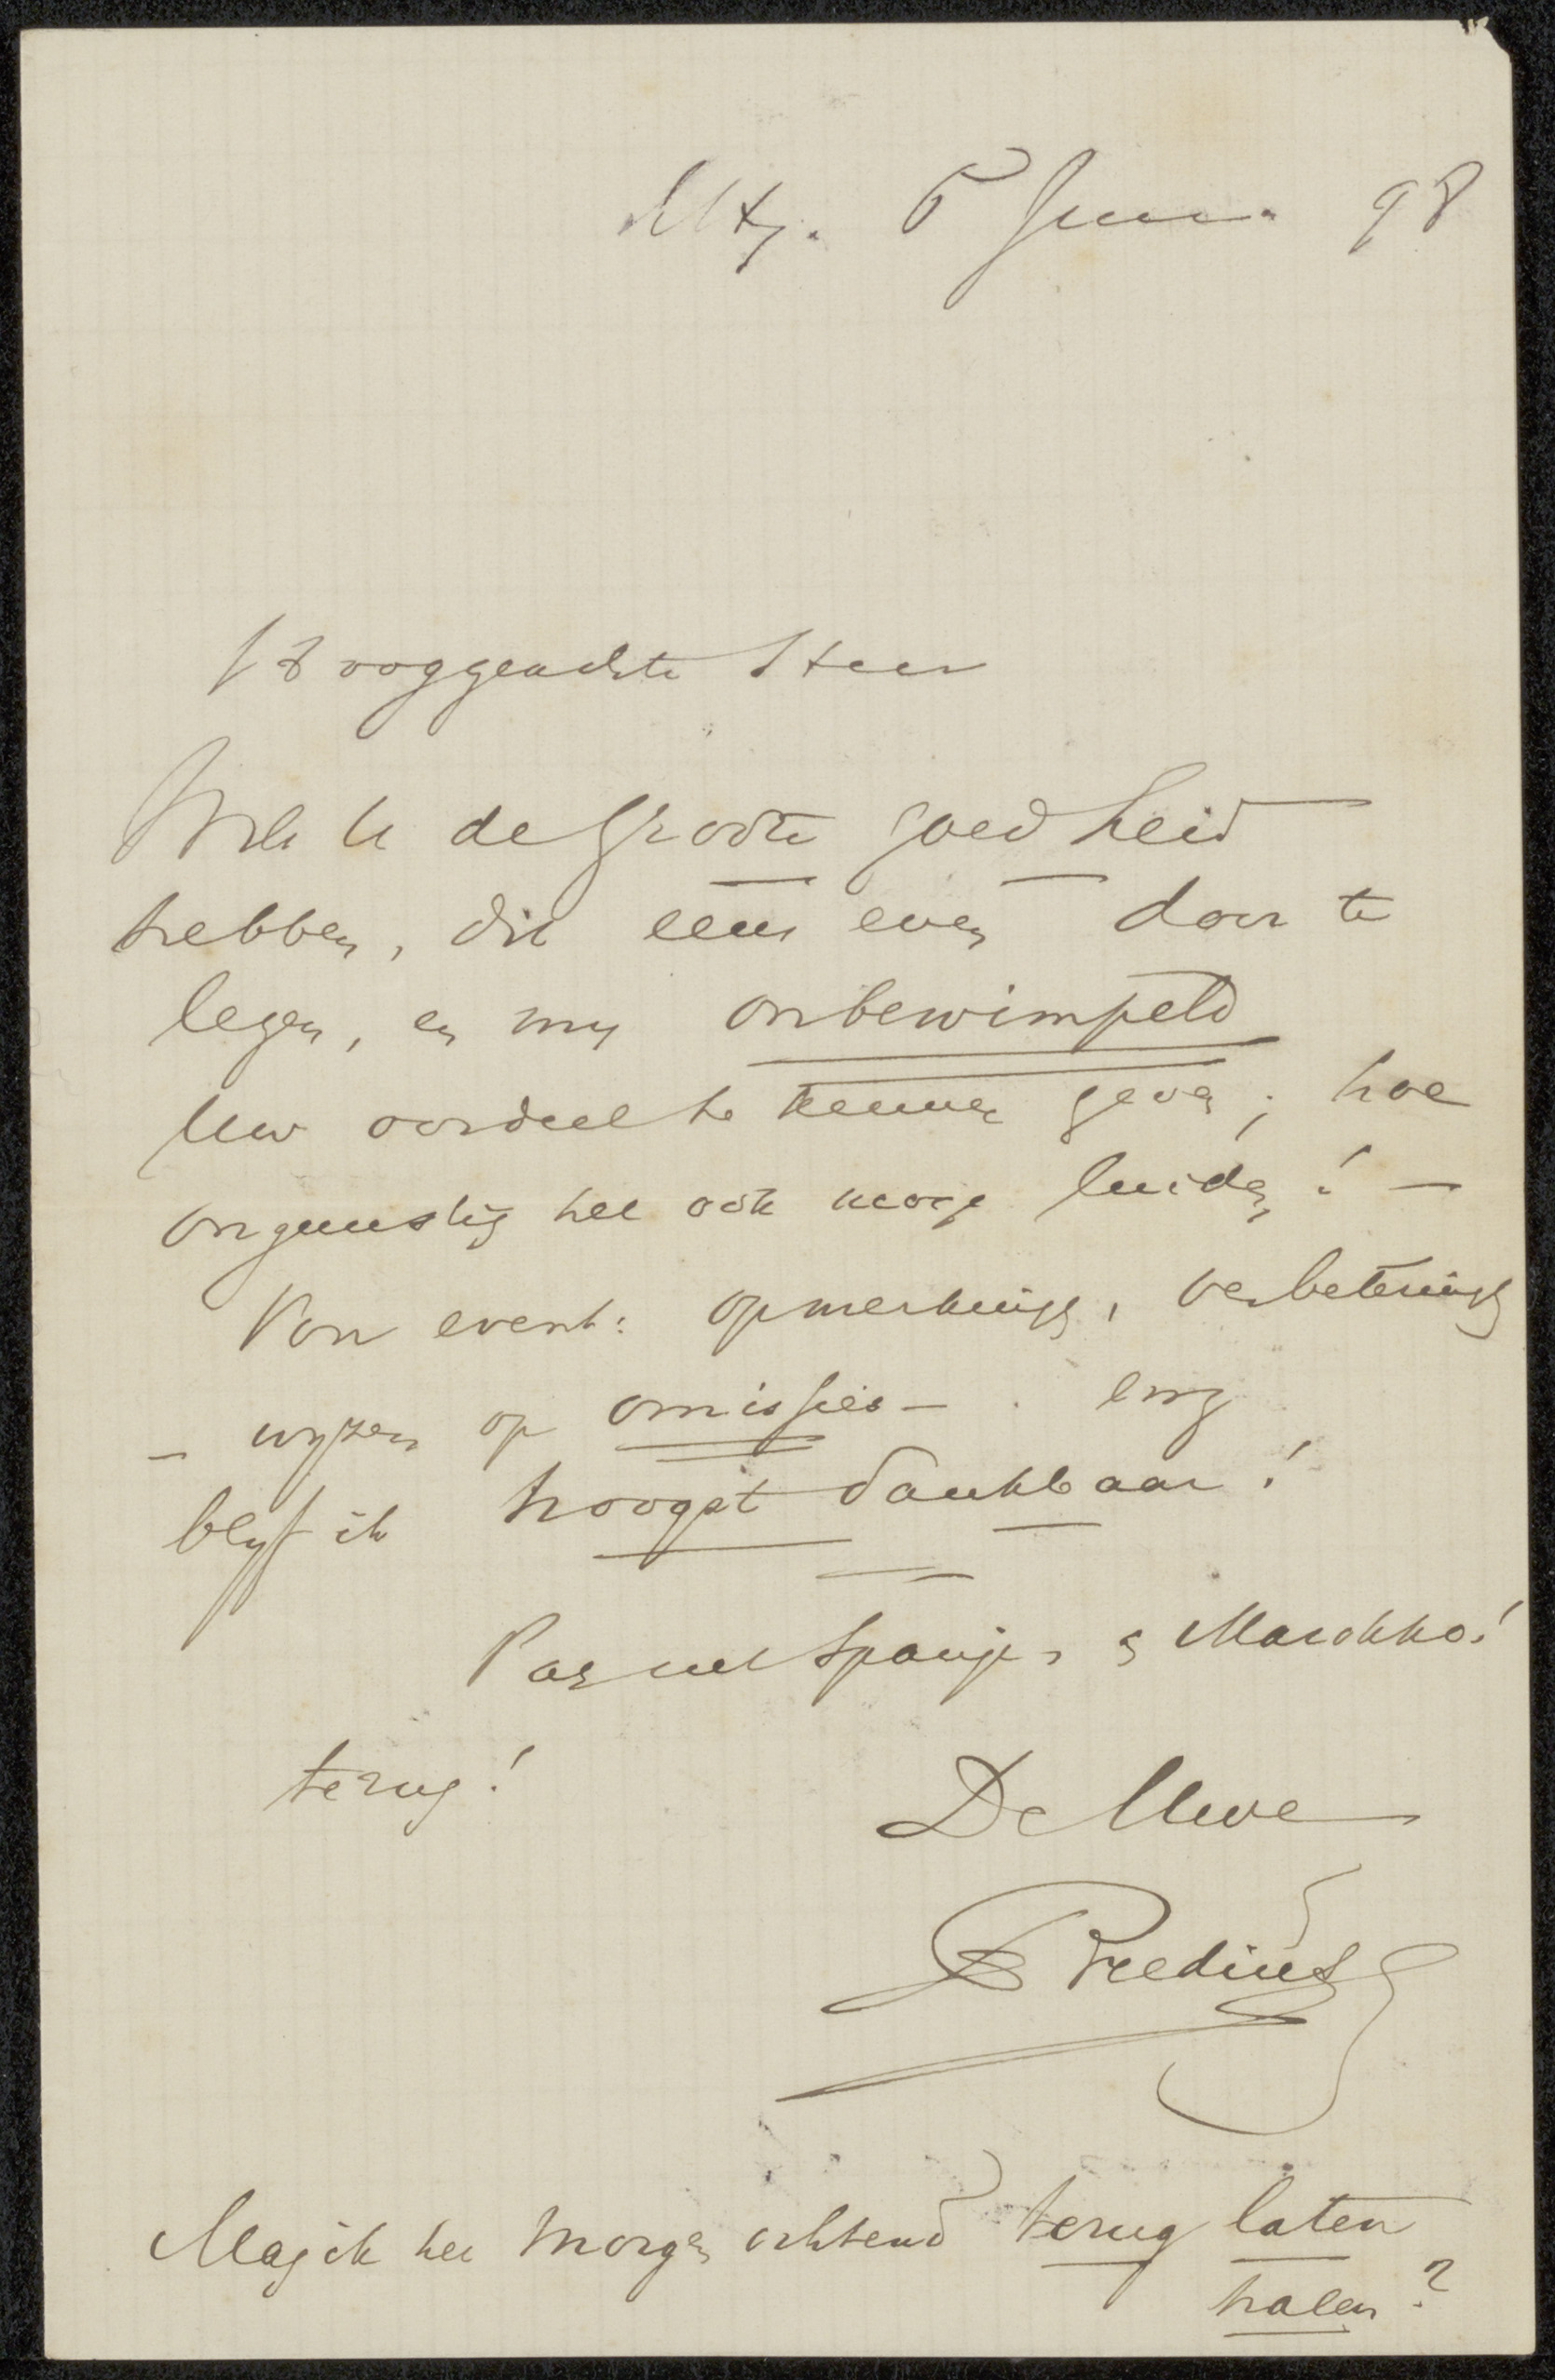 5 Juni. 98
Hooggeachte Heer
Wilt U de groote goedheid
hebben, dit eens even door te
lezen, en my onbewimpeld
Uw oordeel te kennen geven; hoe
ongunstig het ook moge luiden! —
Voor event: opmerkingen, verbeteringen
— wyzen op omissies — enz
blyf ik hoogst dankbaar!
Pas uit Spanje, & Marokko!
terug!
De Uwe
ABredius
Mag ik het morgen ochtend terug laten
halen?